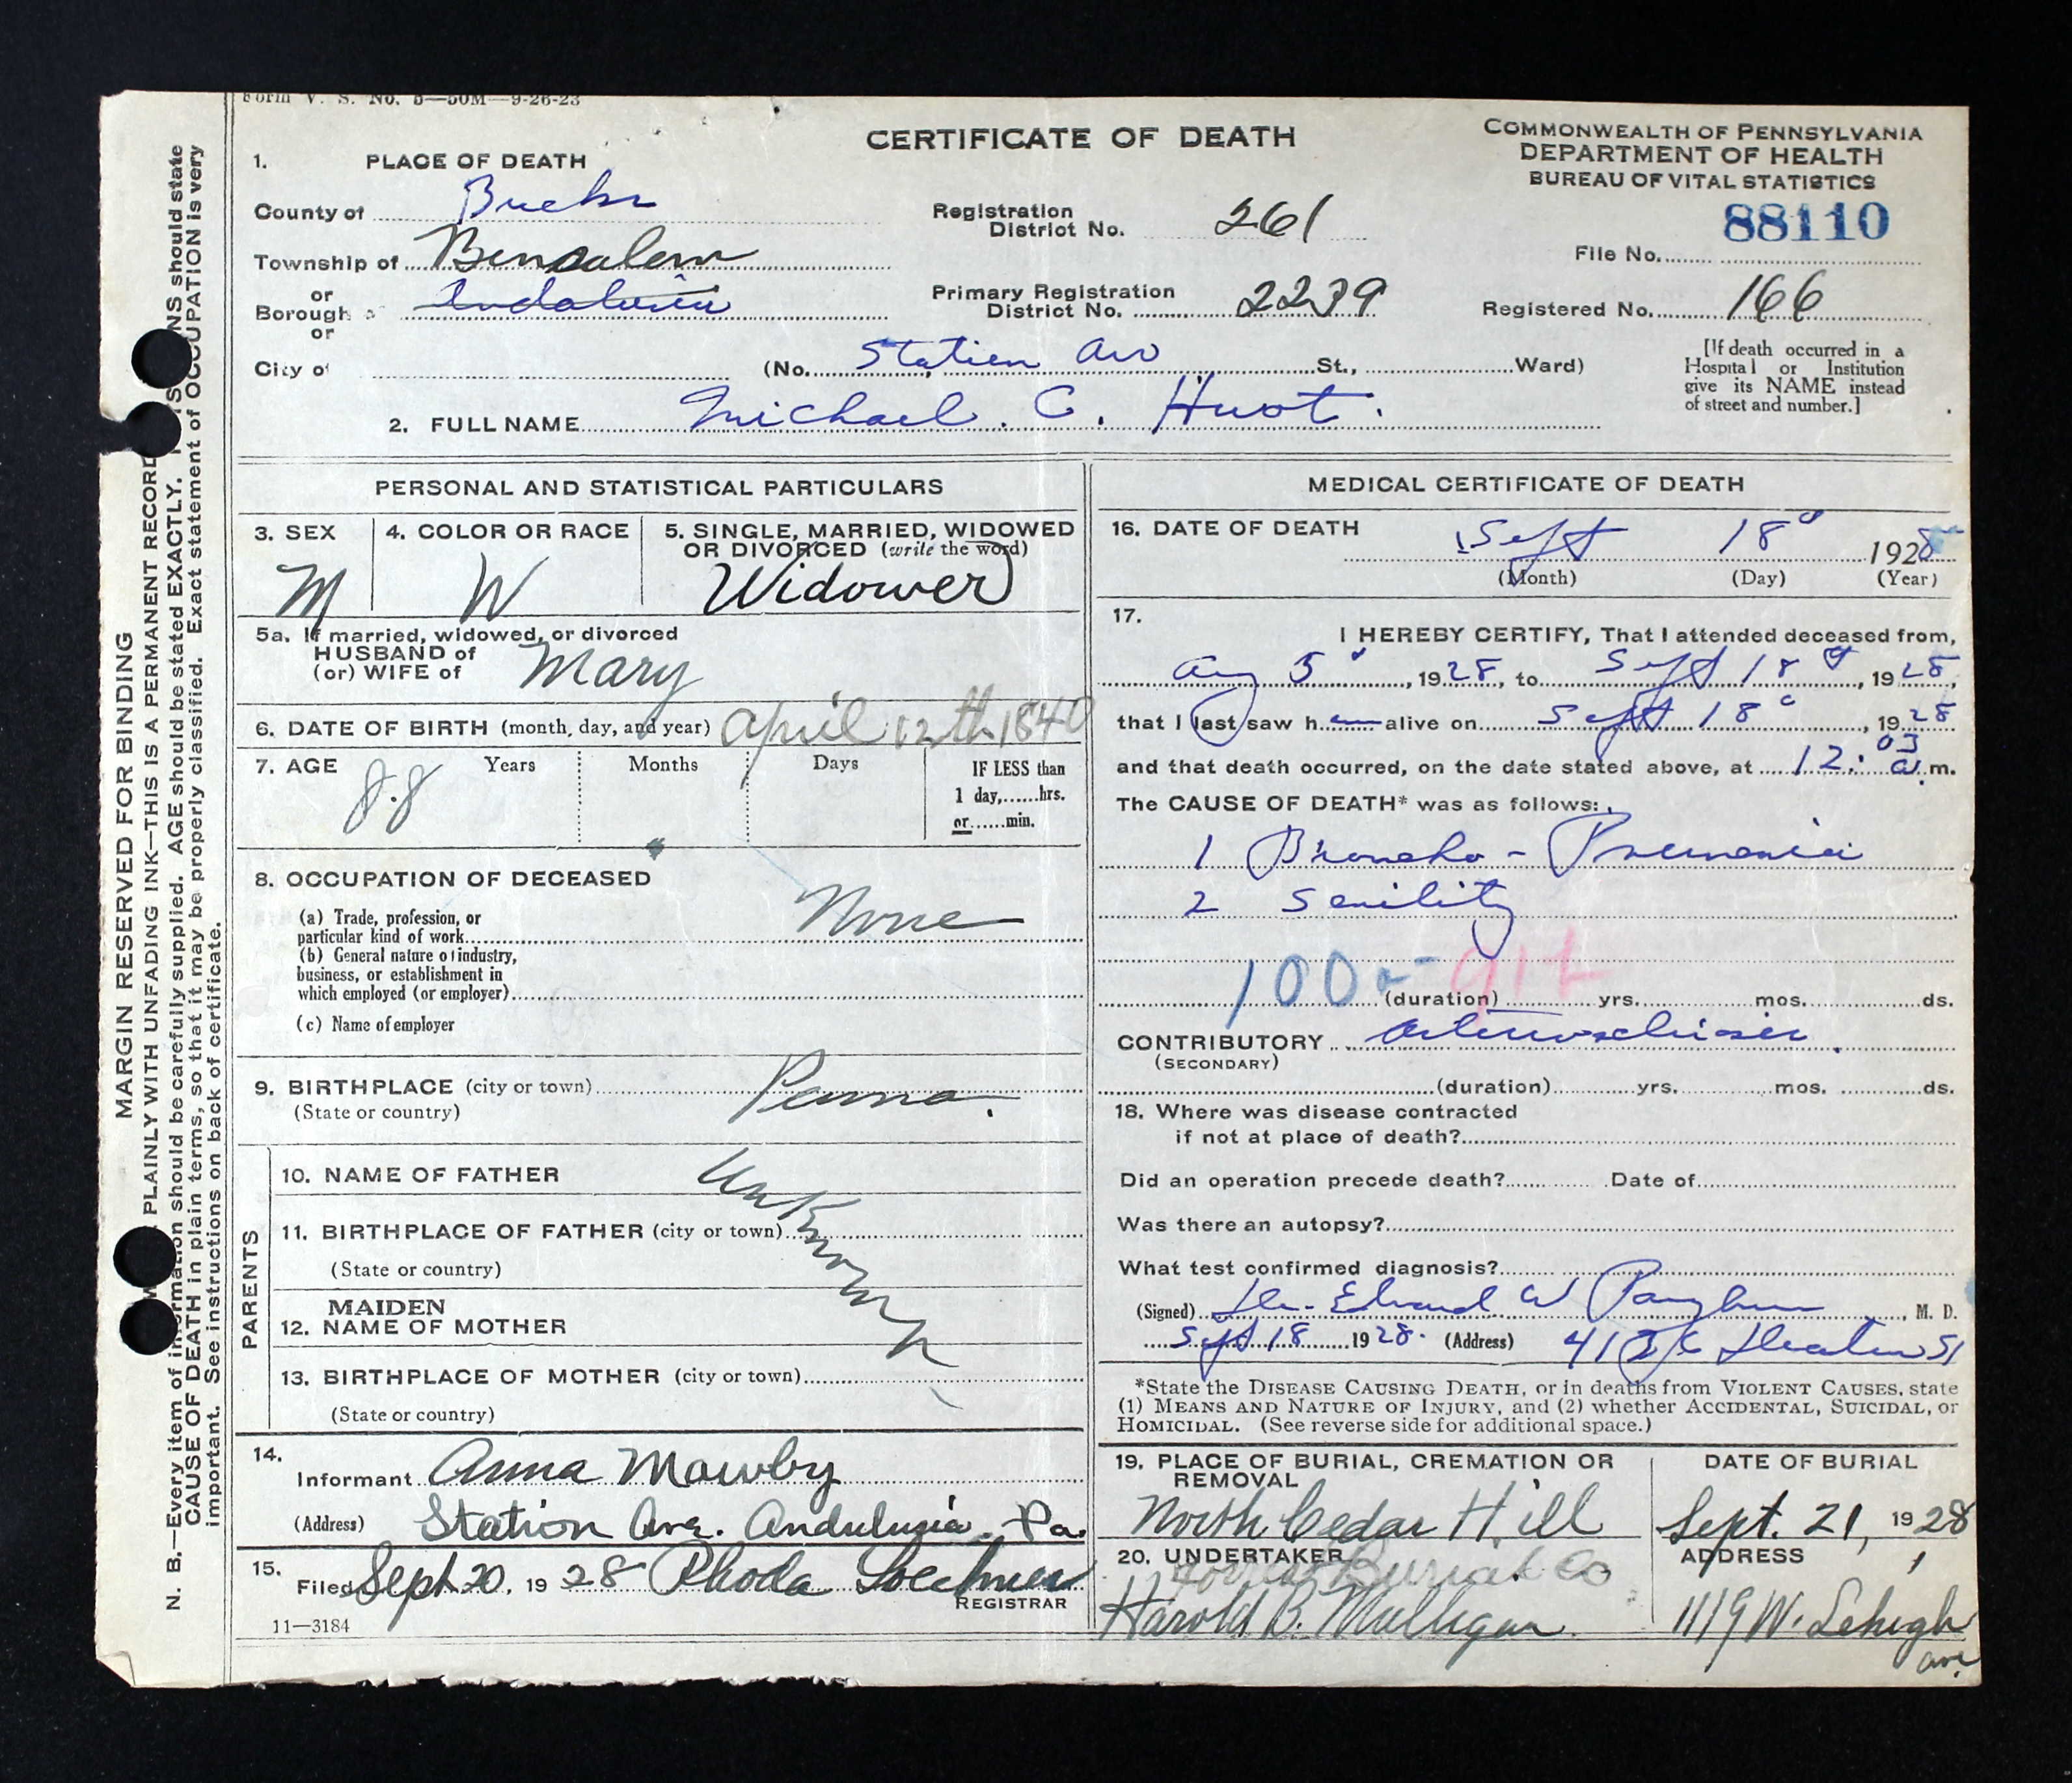 Form V. S. No. 5—50M—9-26-23
CERTIFICATE OF DEATH
COMMONWEALTH OF PENNSYLVANIA
DEPARTMENT OF HEALTH
BUREAU OF VITAL STATISTICS
1. PLACE OF DEATH
County of Bucks
Registration District No. 261
File No. 88110
Township of Bensalem
or Borough of Andalusia
or
Primary Registration District No. 2239
Registered No. 166
City of (No. Station Ave St., Ward)
[If death occurred in a
Hospital or Institution
give its NAME instead
of street and number.]
2. FULL NAME Michael C. Huot.
PERSONAL AND STATISTICAL PARTICULARS
3. SEX M
4. COLOR OR RACE W
5. SINGLE, MARRIED, WIDOWED
OR DIVORCED (write the word)
Widower
5a. If married, widowed, or divorced
HUSBAND of
(or) WIFE of Mary
6. DATE OF BIRTH (month, day, and year) April 12th 1840
7. AGE 88 Years Months Days
IF LESS than
1 day,......hrs.
or......min.
8. OCCUPATION OF DECEASED
(a) Trade, profession, or
particular kind of work None
(b) General nature of industry,
business, or establishment in
which employed (or employer)
(c) Name of employer
9. BIRTHPLACE (city or town) Penna.
(State or country)
PARENTS
10. NAME OF FATHER Unknown
11. BIRTHPLACE OF FATHER (city or town)
(State or country)
12. MAIDEN NAME OF MOTHER
13. BIRTHPLACE OF MOTHER (city or town)
(State or country)
14.
Informant Anna Mawby
(Address) Station Ave. Andulusia. Pa.
15.
Filed Sept 20, 1928 Rhoda
REGISTRAR
11—3184
MEDICAL CERTIFICATE OF DEATH
16. DATE OF DEATH Sept 18 1928
(Month) (Day) (Year)
17.
I HEREBY CERTIFY, That I attended deceased from,
Aug 5, 1928, to Sept 18, 1928,
that I last saw h alive on Sept 18, 1928
and that death occurred, on the date stated above, at 12:03 a.m.
The CAUSE OF DEATH* was as follows:
1 Broncho - Pneumonia
2 Senility
100a- 912
(duration) yrs. mos. ds.
CONTRIBUTORY Arteriosclerosis
(SECONDARY)
(duration) yrs. mos. ds.
18. Where was disease contracted
if not at place of death?
Did an operation precede death? Date of
Was there an autopsy?
What test confirmed diagnosis?
(Signed) Edward W , M. D.
Sept 18 1928. (Address)
*State the DISEASE CAUSING DEATH, or in deaths from VIOLENT CAUSES, state
(1) MEANS AND NATURE OF INJURY, and (2) whether ACCIDENTAL, SUICIDAL, or
HOMICIDAL. (See reverse side for additional space.)
19. PLACE OF BURIAL, CREMATION OR
REMOVAL
North Cedar Hill
DATE OF BURIAL
Sept. 21, 1928
20. UNDERTAKER
Burial Co
Harold B. Mulligan
ADDRESS
1119 W. Lehigh
ave.
MARGIN RESERVED FOR BINDING
PLAINLY WITH UNFADING INK—THIS IS A PERMANENT RECORD
N. B.—Every item of information should be carefully supplied. AGE should be stated EXACTLY. should state
CAUSE OF DEATH in plain terms, so that it may be properly classified. Exact statement of OCCUPATION is very
important. See instructions on back of certificate.